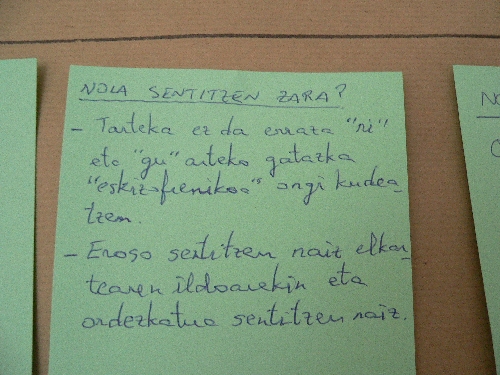 NOLA SENTITZEN ZARA?
- Tarteka ez da erraza "ni"
eta "gu" arteko gatazka
"eskizofrenikoa" ongi kudea-
tzen.
- Eroso sentitzen naiz elkar-
tearen ildoarekin eta
ordezkatua sentitzen naiz.
NO